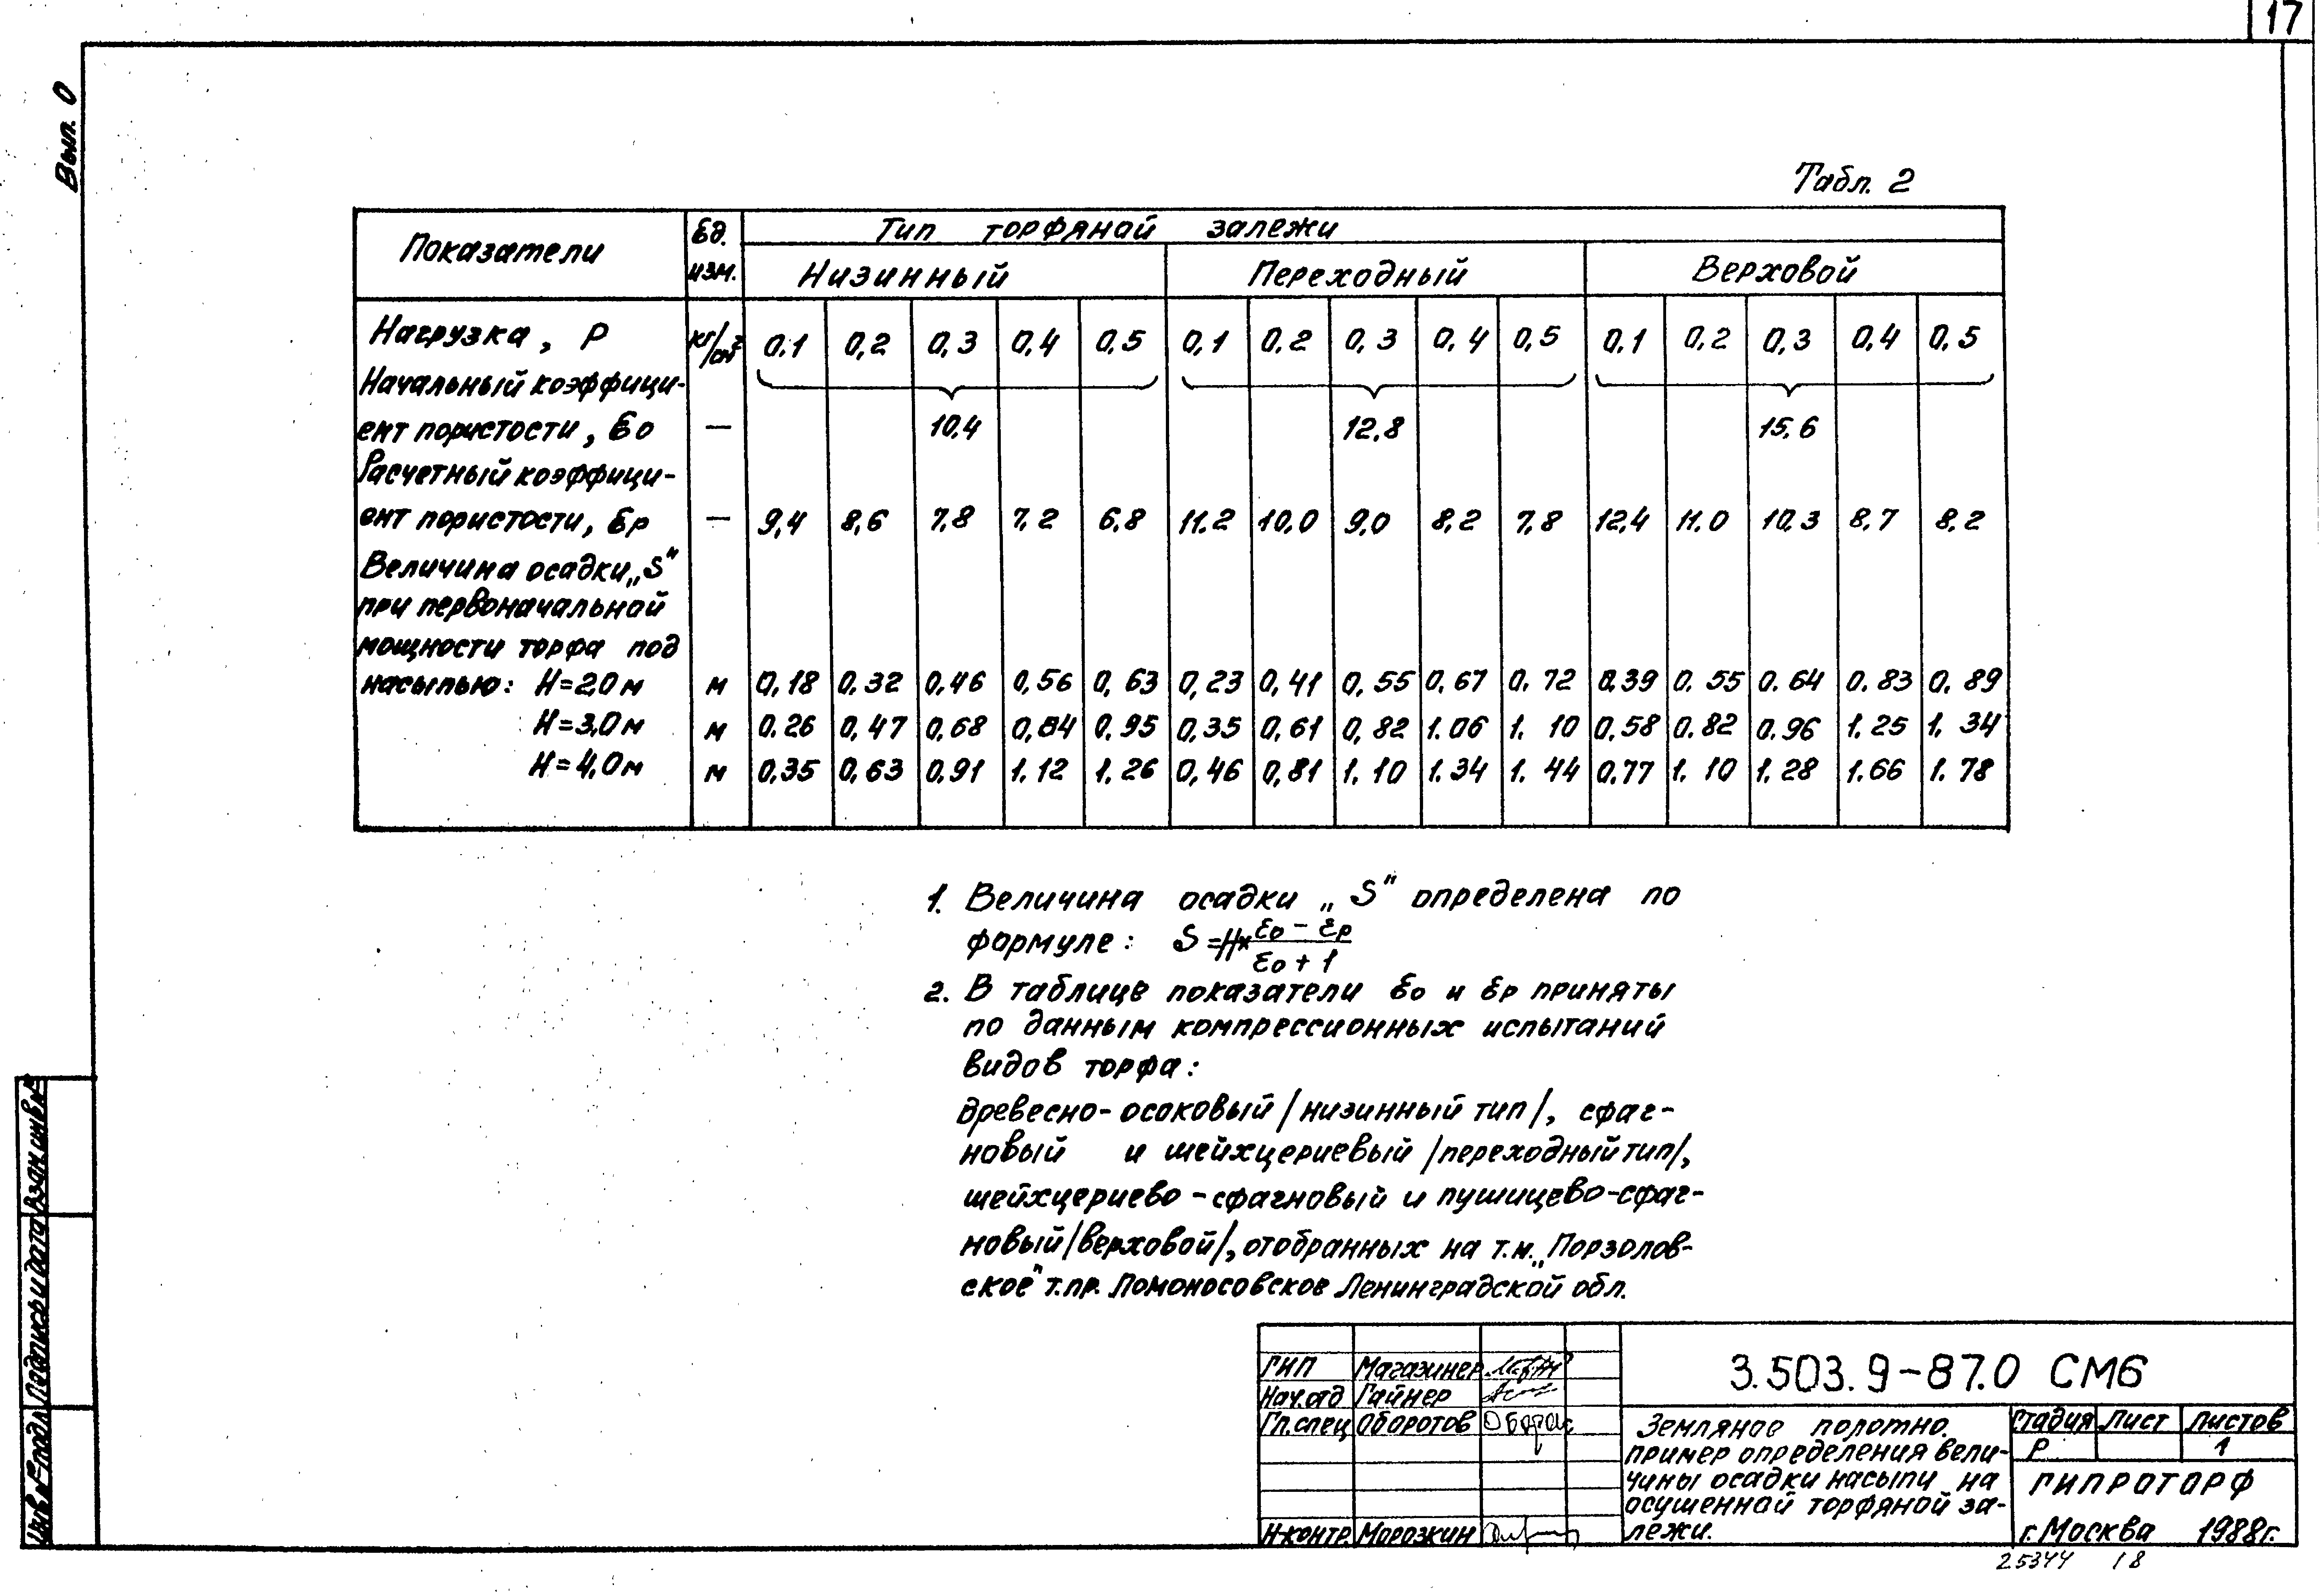 17
Вып. 0
Табл. 2
Показатели Ед. изм. Тип торфяной залежи
Низинный Переходный Верховой
Нагрузка, Р кг/см² 0,1 0,2 0,3 0,4 0,5 0,1 0,2 0,3 0,4 0,5 0,1 0,2 0,3 0,4 0,5
Начальный коэффици-
ент пористости, Ɛо — 10,4 12,8 15,6
Расчетный коэффици-
ент пористости, Ɛр — 9,4 8,6 7,8 7,2 6,8 11.2 10,0 9,0 8,2 7,8 12,4 11.0 10,3 8,7 8,2
Величина осадки „S"
при первоначальной
мощности торфа под
насыпью: Н=2,0м м 0,18 0,32 0,46 0,56 0,63 0,23 0,41 0,55 0,67 0,72 0,39 0.55 0.64 0.83 0.89
Н=3,0м м 0.26 0,47 0,68 0,84 0,95 0,35 0,61 0,82 1.06 1.10 0,58 0.82 0.96 1.25 1.34
Н=4,0м м 0,35 0,63 0,91 1,12 1,26 0,46 0,81 1.10 1.34 1.44 0.77 1.10 1.28 1.66 1.78
1. Величина осадки „S" определена по
формуле: S=H×(Ɛо - Ɛр)/(Ɛо + 1)
2. В таблице показатели Ɛо и Ɛр приняты
по данным компрессионных испытаний
видов торфа:
древесно-осоковый /низинный тип/, сфаг-
новый и шейхцериевый /переходный тип/,
шейхцериево-сфагновый и пушицево-сфаг-
новый /верховой/, отобранных на т.м. „Порзолов-
ское" т.пр. Ломоносовское Ленинградской обл.
ГИП Магазинер
Нач.отд Гайнер
Гл.спец Оборотов
Н.контр. Морозкин
3.503.9-87.0 СМ6
Земляное полотно.
Пример определения вели-
чины осадки насыпи на
осушенной торфяной за-
лежи.
Стадия Лист Листов
Р 1
ГИПРОТОРФ
г. Москва 1988г.
25344 18
Взам.инв.№
Подпись и дата
Инв.№ подл.